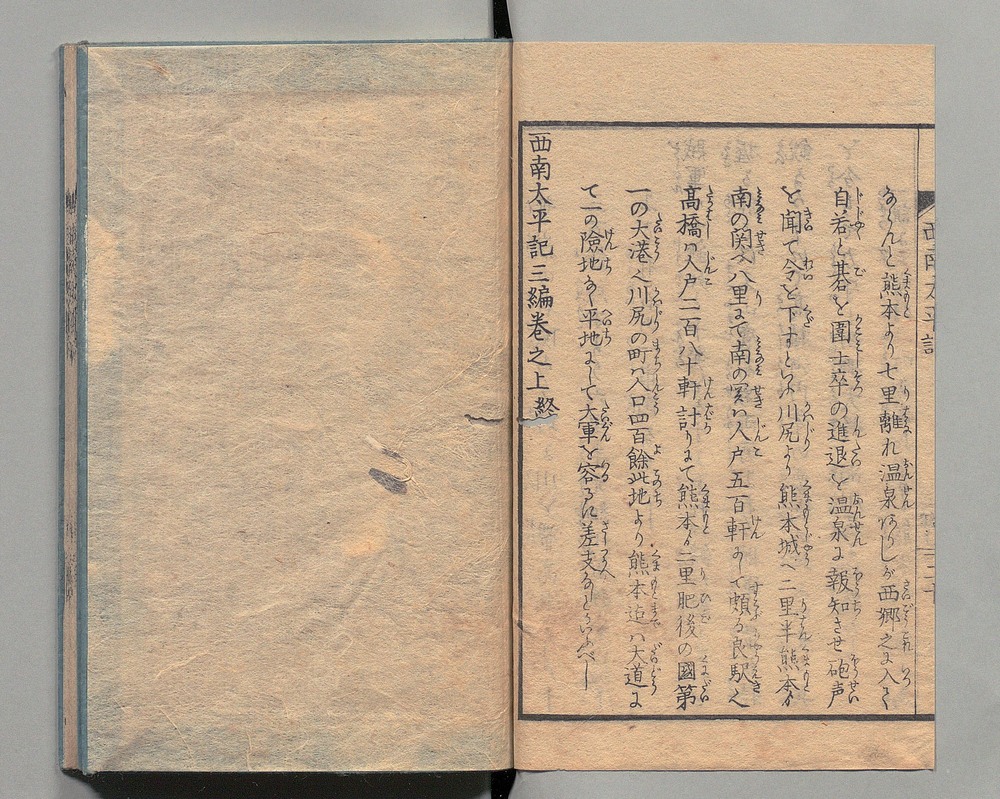 西南太平記
二十
ならんと熊本より七里離れ温泉ありしが西郷之に入て
自若と碁を圍士卒の進退を温泉に報知させ砲声
を聞て令を下すといふ川尻より熊本城へ二里半熊本ゟ
南の関へ八里にて南の関ハ人戸五百軒にして頗る良駅也
高橋ハ人戸二百八十軒計りにて熊本ゟ二里肥後の國第
一の大港也川尻の町ハ人口四百餘此地より熊本迄ハ大道に
て一の險地なく平地にして大軍を容るに差支なしといふべし
西南太平記三編巻之上終